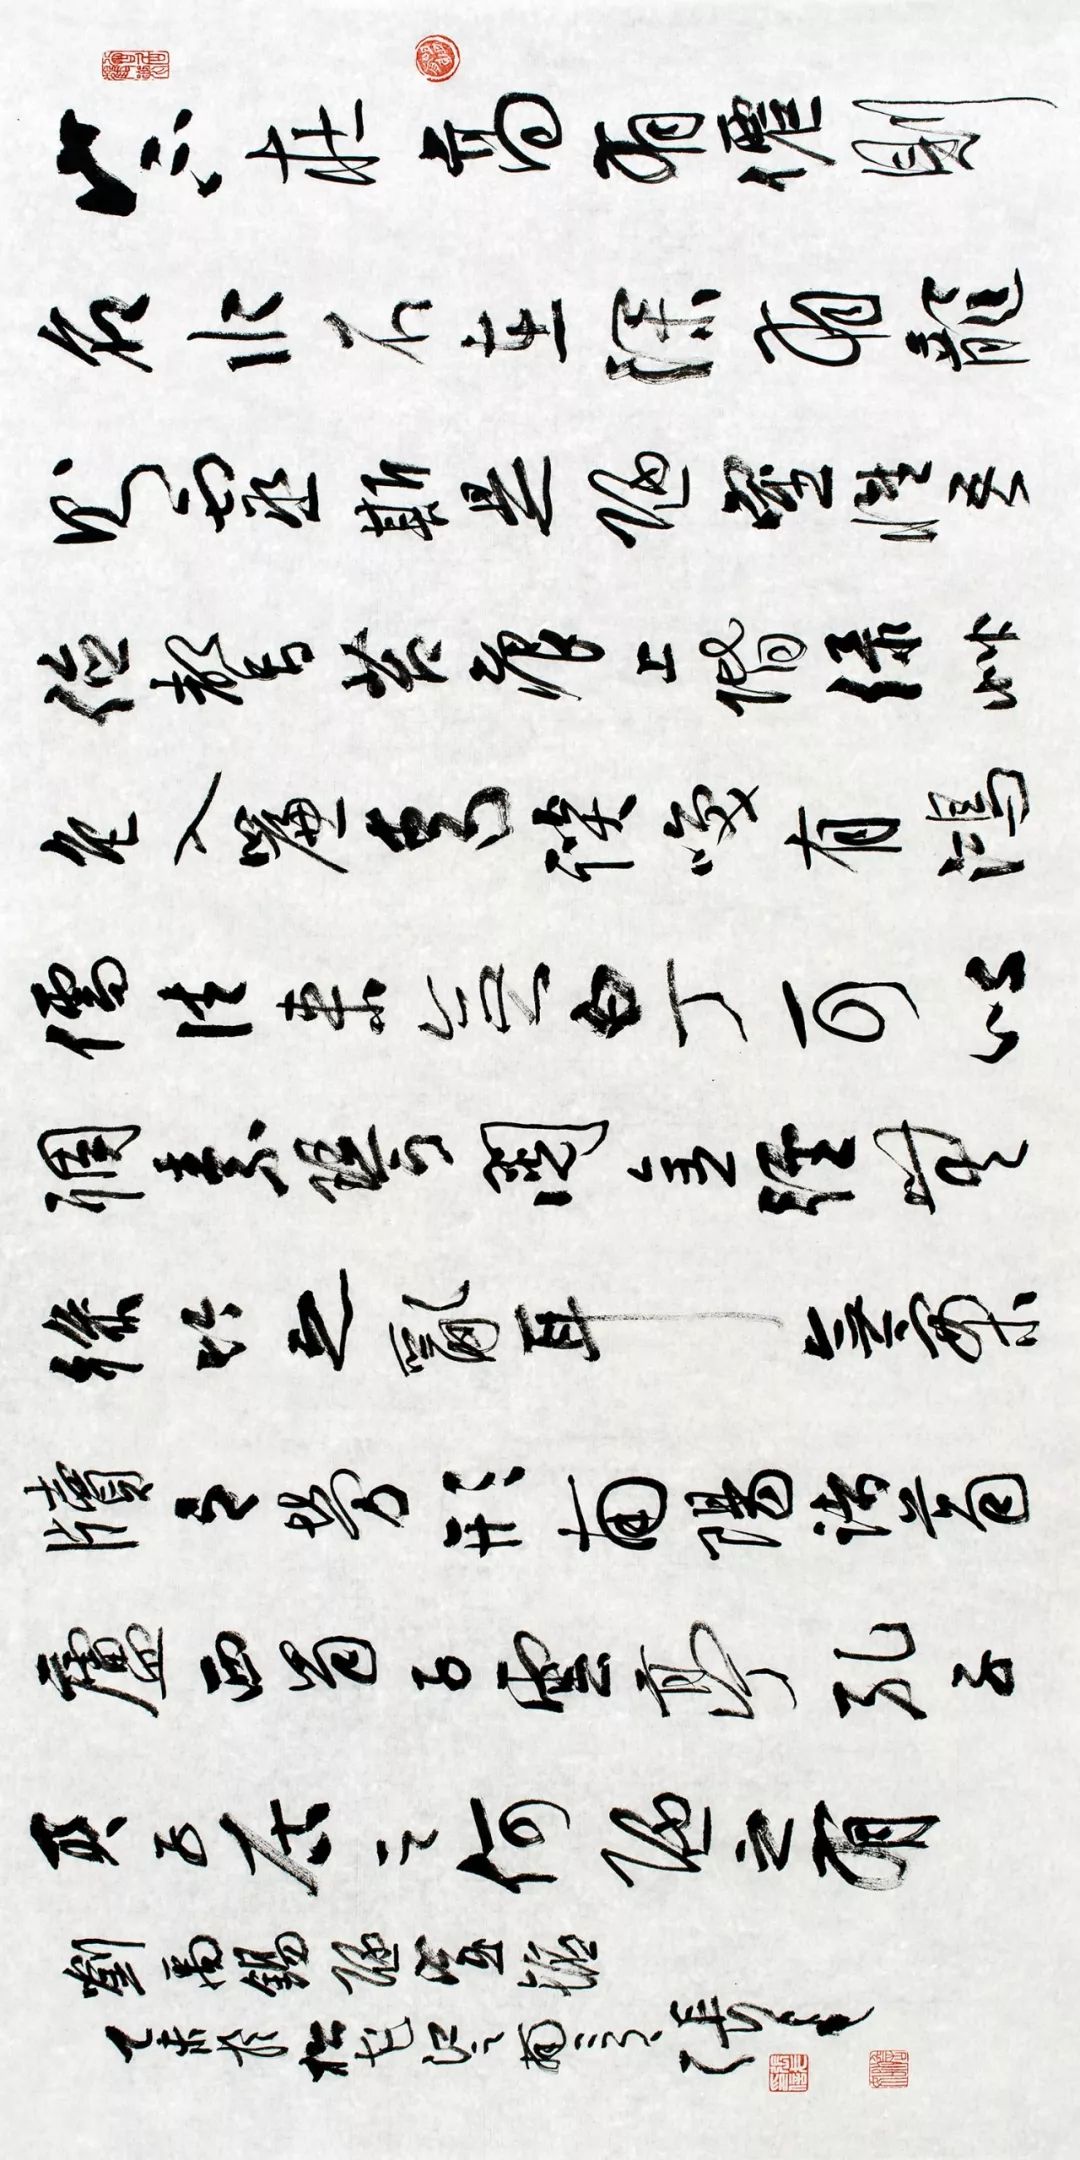 山不在高有僊則
名水不在深有龍
則靈斯是陋室惟吾
德馨苔痕上階綠艸
色入簾青談笑有鴻
儒往來無白丁可以
調素琴閱金經無
絲竹之亂耳無案
牘之勞形南陽諸葛
廬西蜀子雲亭孔子
君子居之何陋之有
劉禹錫陋室銘
乙未春